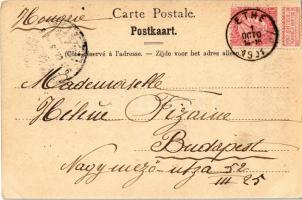 Hongrie
Carte Postale.
Postkaart.
(Côté réservé à l'adresse. — Zijde voor het adres alleen.)
ETHE
OCTO
Mademoiselle
Hélène Fizaine
Budapest
Nagymező-utza 52
III 25